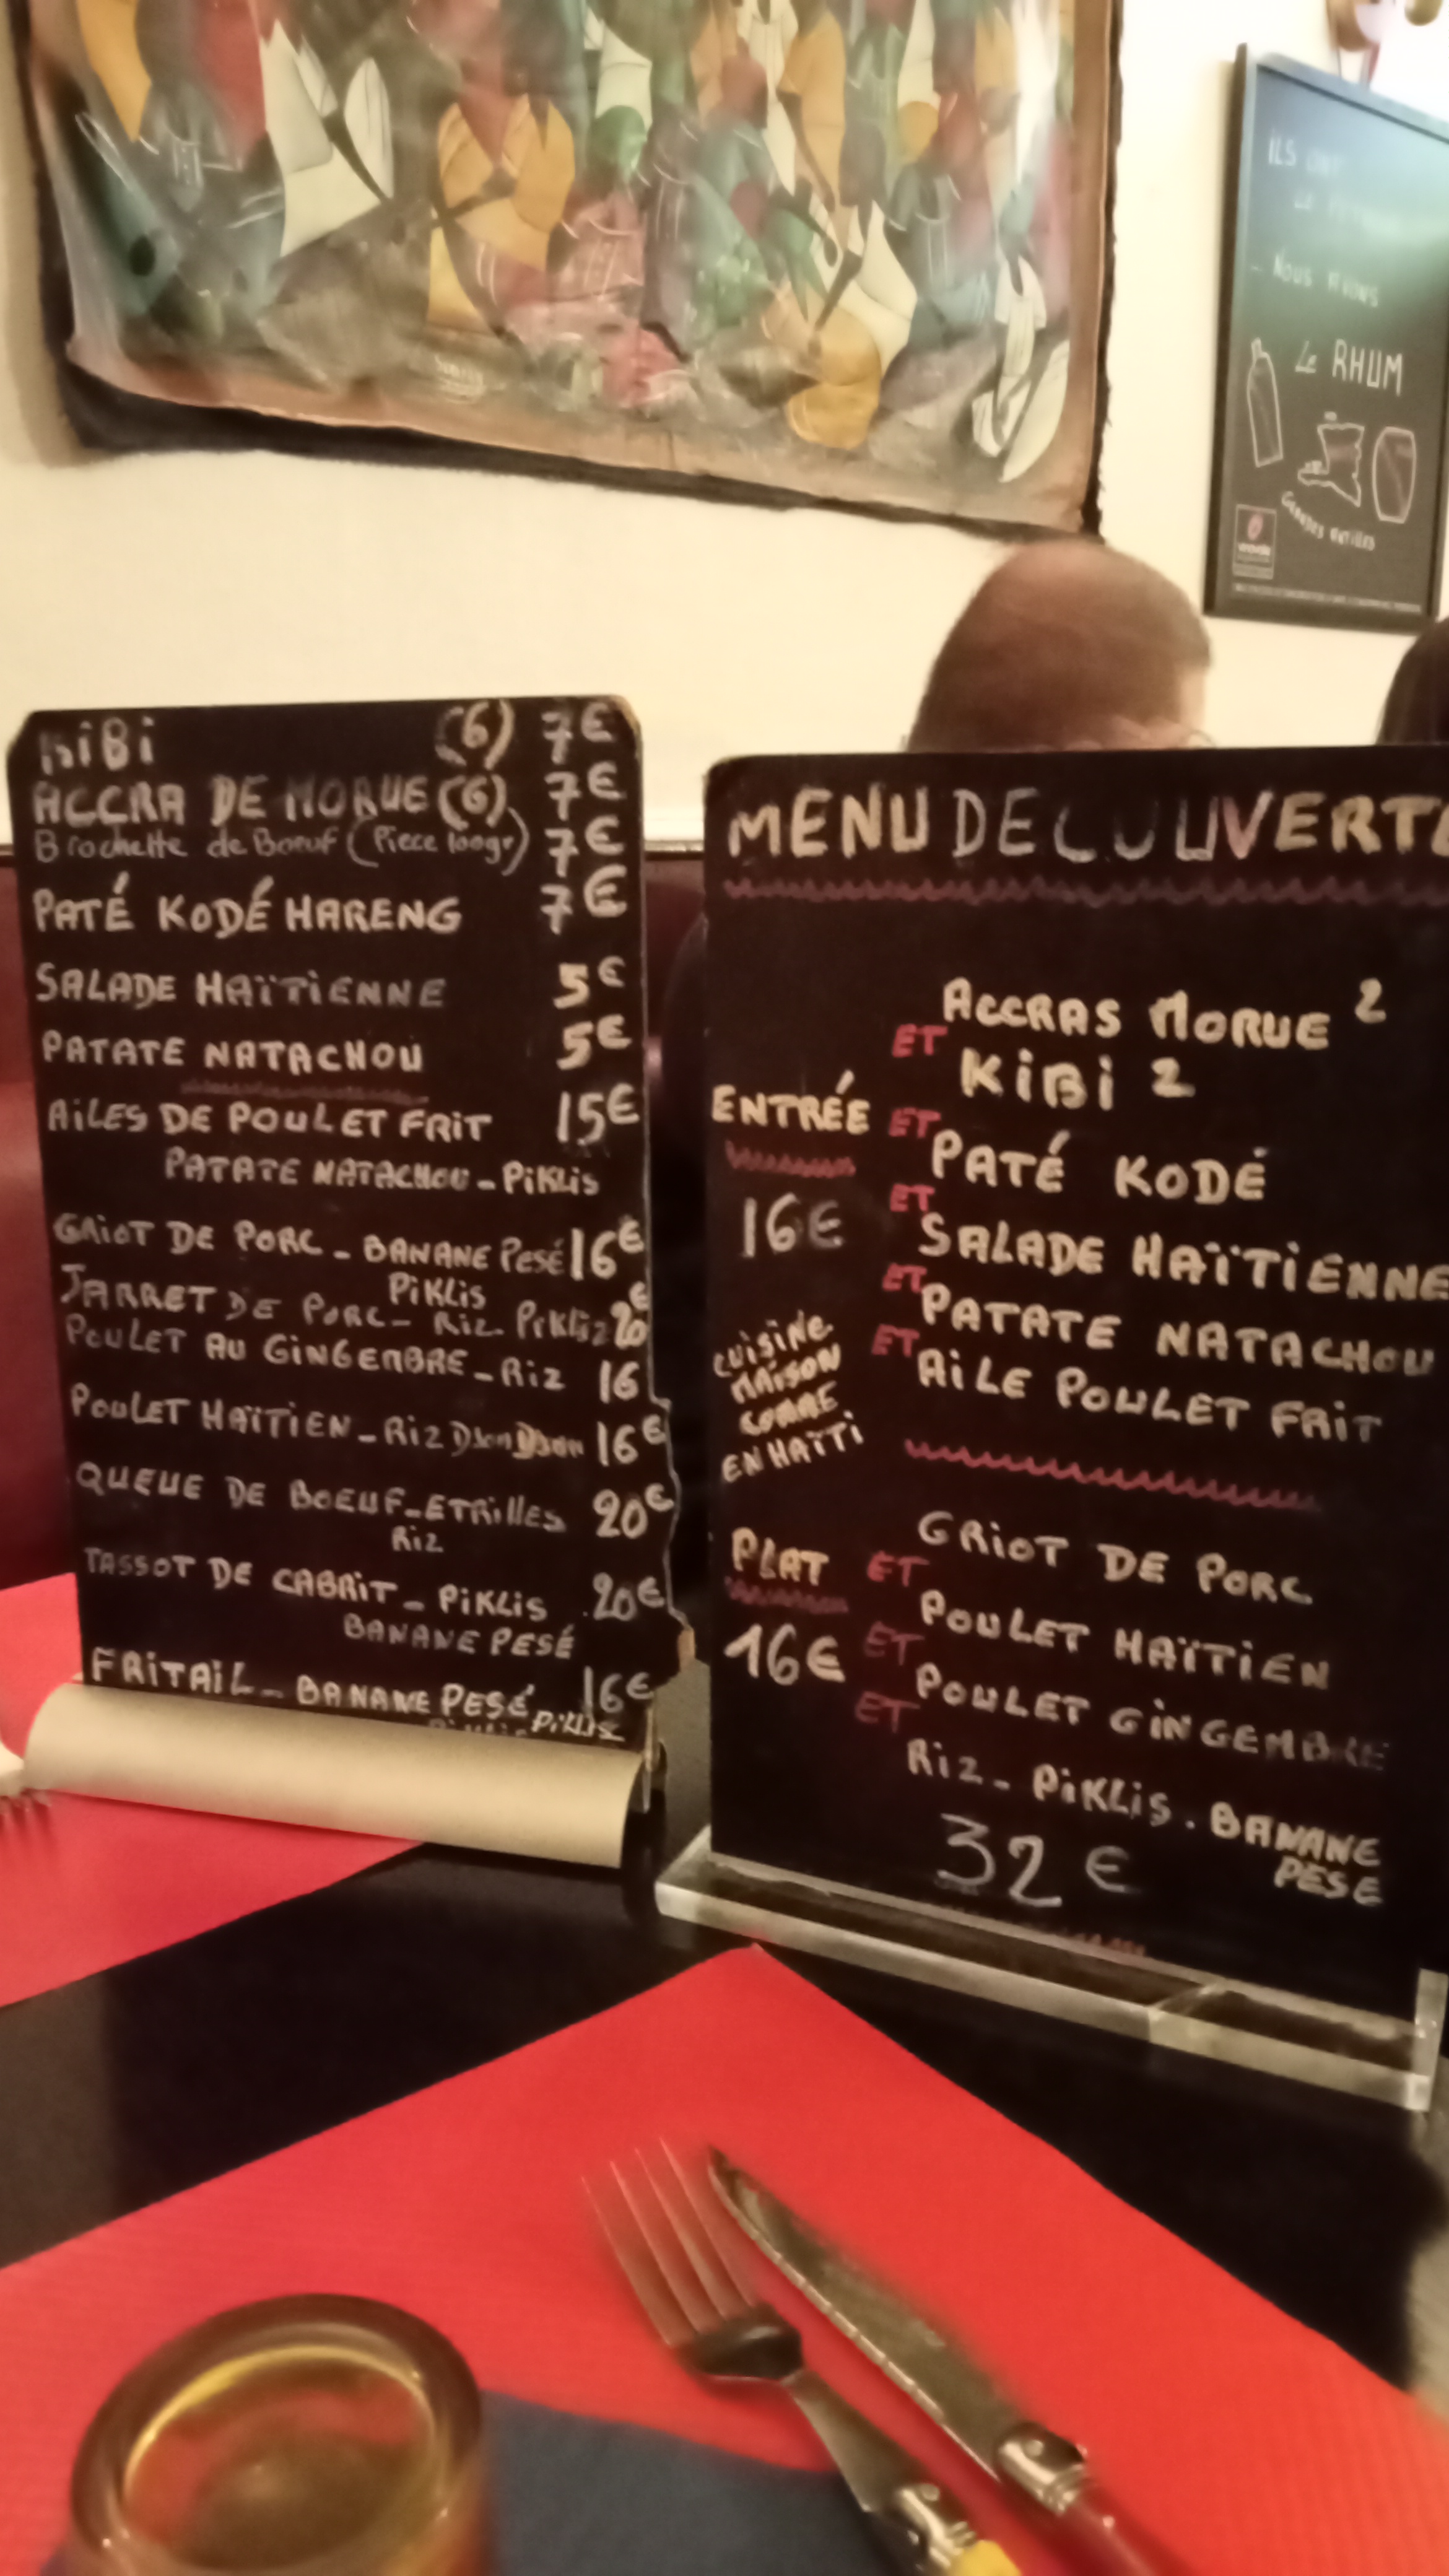 KiBi (6) 7€
ACCRA DE MORUE (6) 7€
Brochette de Boeuf (Piece 7€
PATÉ KODÉ HARENG 7€
SALADE HAÏTIENNE 5€
PATATE NATACHOU 5€
AILES DE POULET FRIT 15€
PATATE NATACHOU - PiKLis
GRIOT DE PORC - BANANE Pesé 16€
PiKLis
JARRET DE PORC - Riz PiKLis 20€
POULET AU GINGEMBRE - Riz 16
POULET HAÏTIEN - Riz DjonDjon 16€
QUEUE DE BOEUF - ETRILLES 20€
Riz
TASSOT DE CABRIT - PiKLis 20€
BANANE PESÉ
FRITAIL - BANANE PESÉ 16€
PiKLis
MENU DECOUVERTE
ACCRAS MORUE 2
ET
KiBi 2
ENTRÉE
ET
PATÉ KODÉ
16€
ET
SALADE HAÏTIENNE
ET
PATATE NATACHOU
ET
AILE POULET FRIT
CUISINE
MAISON
COMME
EN HAÏTI
GRIOT DE PORC
PLAT
ET
POULET HAÏTIEN
16€
ET
POULET GINGEMBRE
ET
Riz - PiKLis . BANANE
PESE
32 €
ILS ONT
- NOUS AVONS
Le RHUM